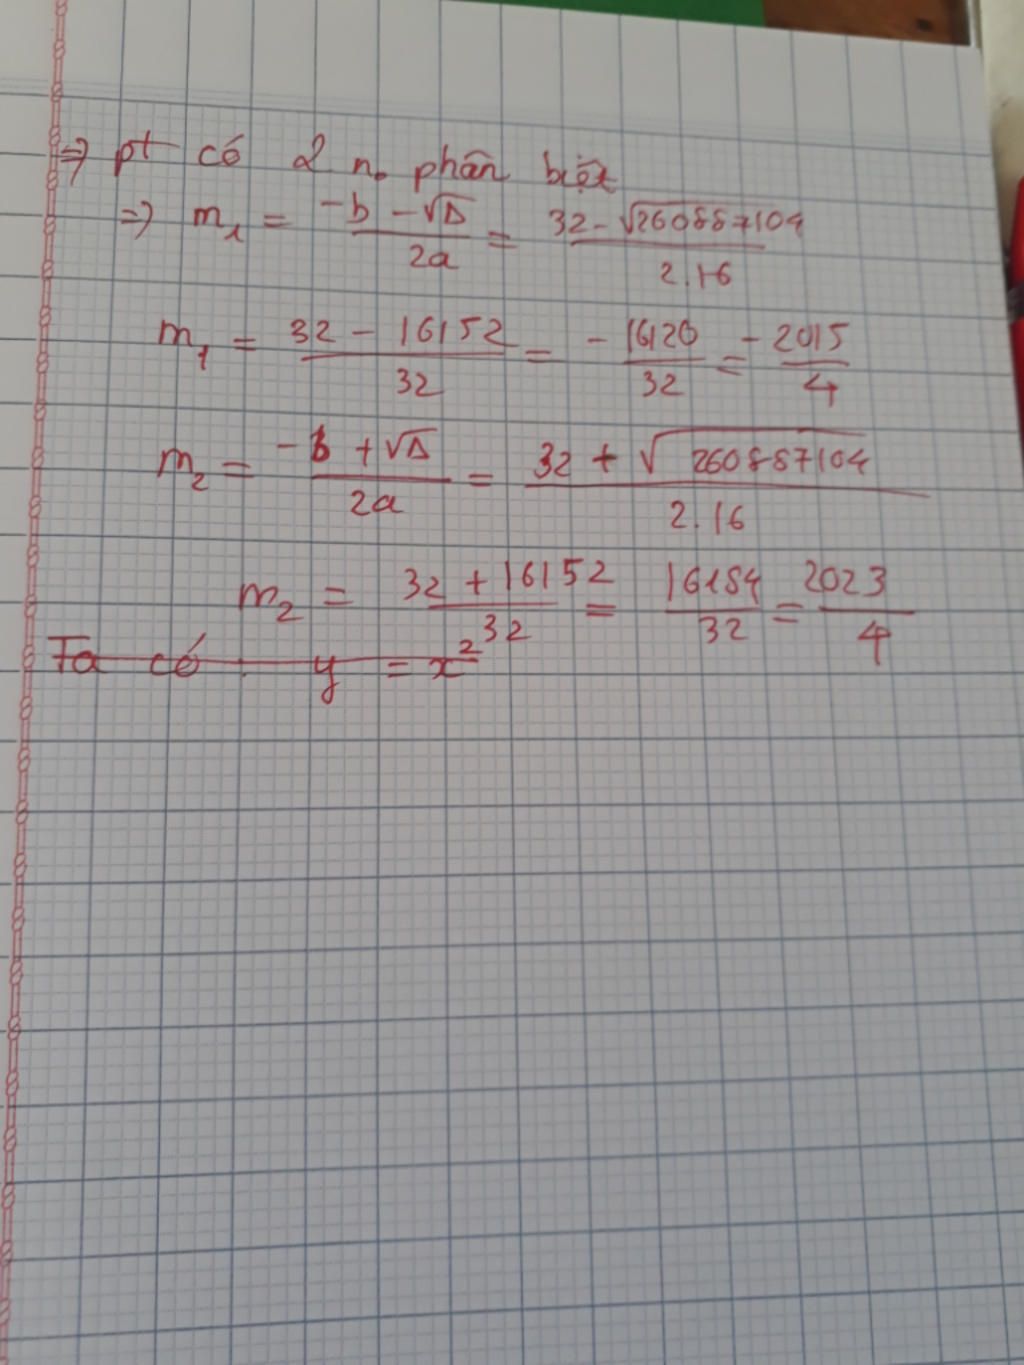 => pt có 2 n. phân biệt
=> m₁ = (-b - √Δ)/2a = (32 - √260887104)/2.16
m₁ = (32 - 16152)/32 = -16120/32 = -2015/4
m₂ = (-b + √Δ)/2a = (32 + √260887104)/2.16
m₂ = (32 + 16152)/32 = 16184/32 = 2023/4
Ta có : y = x²